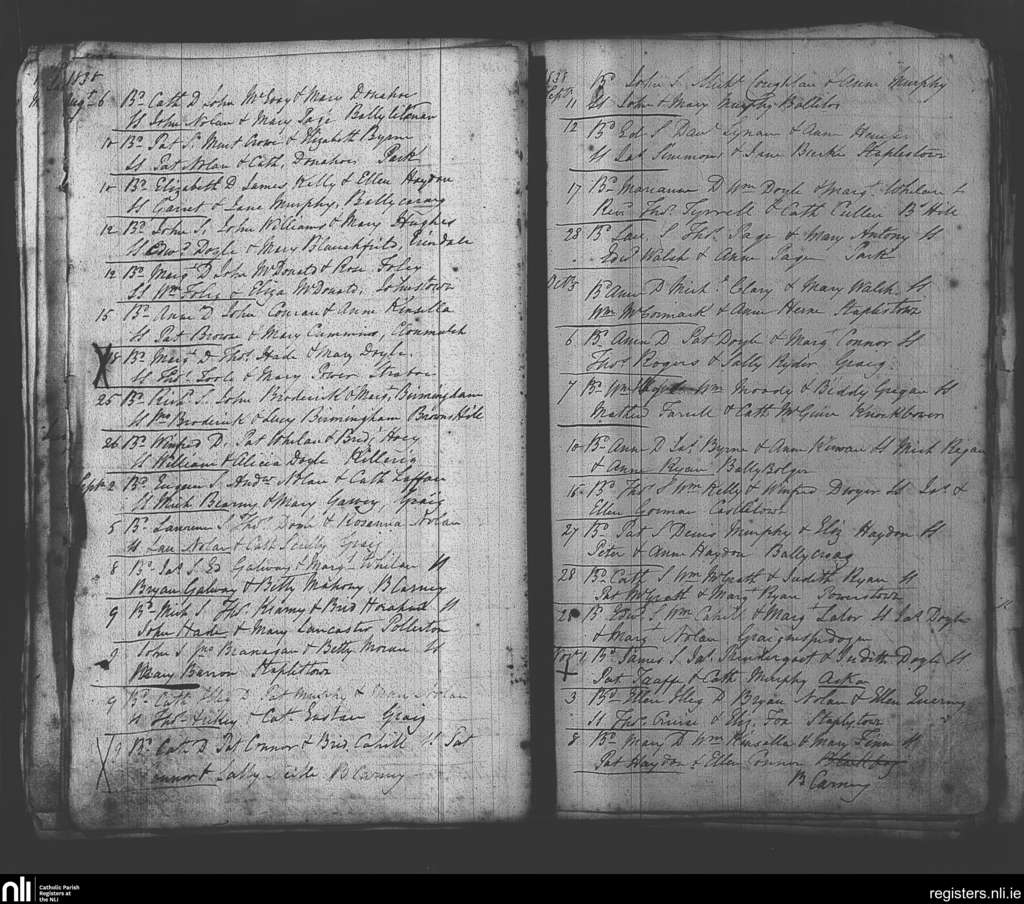 1838
Augt 6 Bd Cath D John McEvoy & Mary Donahoe
Ss John Nolan & Mary Page Ballyleteman
10 Bd Pat S Murt Crowe & Elizabeth Byrne
Ss Pat Nolan & Cath Donahoe Park
10 Bd Elizabeth D James Kelly & Ellen Haydon
Ss Garret & Jane Murphy, Ballycarny
12 Bd John S. John Williams & Mary Hughes
Ss Edwd Doyle & Mary
12 Bd Margt D John McDonald & Rose Foley
Ss Wm Foley & Eliza McDonald, Johnstown
15 Bd Anne D John Comran & Anne Kinsella
Ss Pat Brown & Mary Cummins, Clonmelsh
18 Bd Margt D Thos Hade & Mary Doyle
Ss Thos Toole & Mary Power
25 Bd S. John Broderick & Margt Birmingham
Ss Broderick & Lucy Birmingham Browns Hill
26 Bd Winfred D. Pat Whelan & Brid Hoey
Ss William & Alicia Doyle Killerig
Septr 2 Bd Eugene S. Andw Nolan & Cath Laffan
Ss Mich Bearny & Mary Garvey, Graig
5 Bd Laurence S Thos & Rosanna Nolan
Ss Lau Nolan & Cath Scully Graig
8 Bd Jas S. Ed Galway & Margt Whelan Ss
Bryan Galway & Betty Mahony B Carney
9 Bd Mich S Thos Kearny & Brid Ss
John Hade & Mary Lancaster Pollerton
9 John S Jno Branagan & Betty Moran Ss
Mary Barron Staplestown
9 Bd Cath D Pat Murphy & Nolan
Ss Thos Hickey & Cath Eustace Graig
9 Bd Cath D Pat Connor & Brid Cahill Ss Pat
Connor & Sally B Carney
1838 Bd John S. Michl Coughlan & Anne Murphy
Septr 11 Ss John & Mary Murphy
12 Bd Ed S Danl Lynam & Ann
Ss Jas Simmons & Jane Burke Staplestown
17 Bd Marianne D Wm Doyle & Margt Whelan Ss
Revd Thos Tyrrell & Cath Cullen Bs Hill
28 Bd Lau. S Thos Page & Mary Antony Ss
Edwd Walsh & Anne Page Park
Octr 5 Bd Ann D Michl Clary & Mary Walsh Ss
Wm McCormack & Ann Staplestown
6 Bd Ann D Pat Doyle & Margt Connor Ss
Thos Rogers & Sally Ryder Graig
7 Bd Wm Wm Moody & Biddy Gregan Ss
Mathew Farrell & Cath McGuire Knockbower
10 Bd Anne D Jas Byrne & Ann Kirwan Ss Mich Regan
& Anne Ryan Ballybolger
15 Bd Thos S Wm Kelly & Winfred Dwyer Ss Jas &
Ellen Gorman Castletown
27 Bd Pat S Denis Murphy & Eliz Haydon Ss
Peter & Anne Haydon Ballycraag
28 Bd Cath S Wm McGrath & Judith Ryan Ss
Pat McGrath & Margt Ryan
28 Bd Edwd S Wm Cahill & Margt Lalor Ss Jas Doyle
& Marg Nolan Graiguespidogue
Novr 1 Bd James S Jas Prendergast & Judith Doyle Ss
Pat Taaffe & Cath Murphy Askea
3 Bd Ellen Eliz D Bryan Nolan & Ellen
Ss Thos & Eliz Fox Staplestown
8 Bd Mary D Wm Kinsella & Mary Finn Ss
Pat Haydon & Ellen Connor
B Carney
nli Catholic Parish
Registers at
the NLI
registers.nli.ie